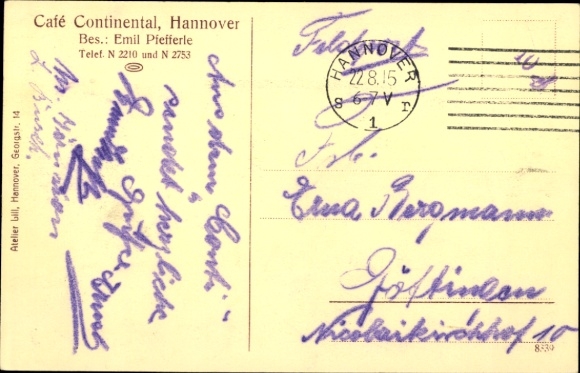 Café Continental, Hannover
Bes.: Emil Pfefferle
Telef. N 2210 und N 2753
Aus dem "Conti"
sendet herzliche
Grüße
Ernst
Atelier Lill, Hannover, Georgstr. 14
Feldpost
HANNOVER
22.8.15
6-7 V
1
Frl.
Erna Bergmann
Göttingen
Nicolaikirchhof 10
8539